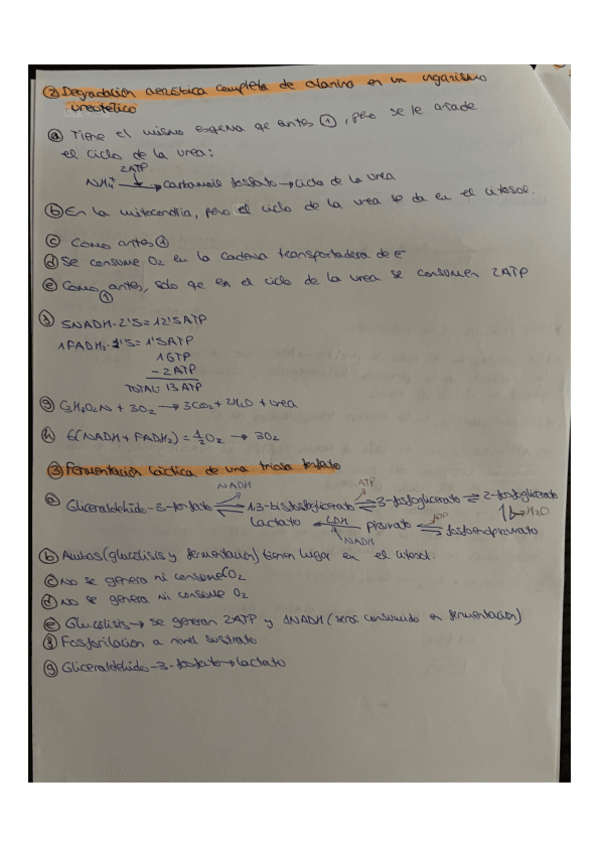 ② Degradación aeróbica completa de alanina en un organismo
ureotélico
ⓐ Tiene el mismo esquema qe antes ①, pero se le añade
el ciclo de la urea:
2ATP
NH4+ → carbamoil fosfato → ciclo de la urea
ⓑ En la mitocondria, pero el ciclo de la urea se da en el citosol.
ⓒ Como antes ①
ⓓ Se consume O2 en la cadena transportadora de e-
ⓔ Como antes, solo qe en el ciclo de la urea se consumen 2ATP
①
5NADH·2'5=12'5ATP
1FADH2·1'5=1'5ATP
1GTP
-2ATP
TOTAL: 13 ATP
ⓖ C3H7O2N + 3O2 → 3CO2 + 2H2O + urea
ⓗ 6(NADH + FADH2) = ½O2 → 3O2
③ Fermentación láctica de una triosa fosfato
NADH ATP
ⓐ Gliceraldehído-3-fosfato ⇌ 1,3-bisfosfoglicerato ⇌ 3-fosfoglicerato ⇌ 2-fosfoglicerato
H2O
lactato ← LDH piruvato ⇌ fosfoenolpiruvato
NADH
ⓑ Ambas (glucólisis y fermentación) tienen lugar en el citosol.
ⓒ No se genera ni consume CO2
ⓓ No se genera ni consume O2
ⓔ Glucólisis → se generan 2ATP y 1NADH (será consumido en fermentación)
ⓕ Fosforilación a nivel sustrato
ⓖ Gliceraldehído-3-fosfato → lactato